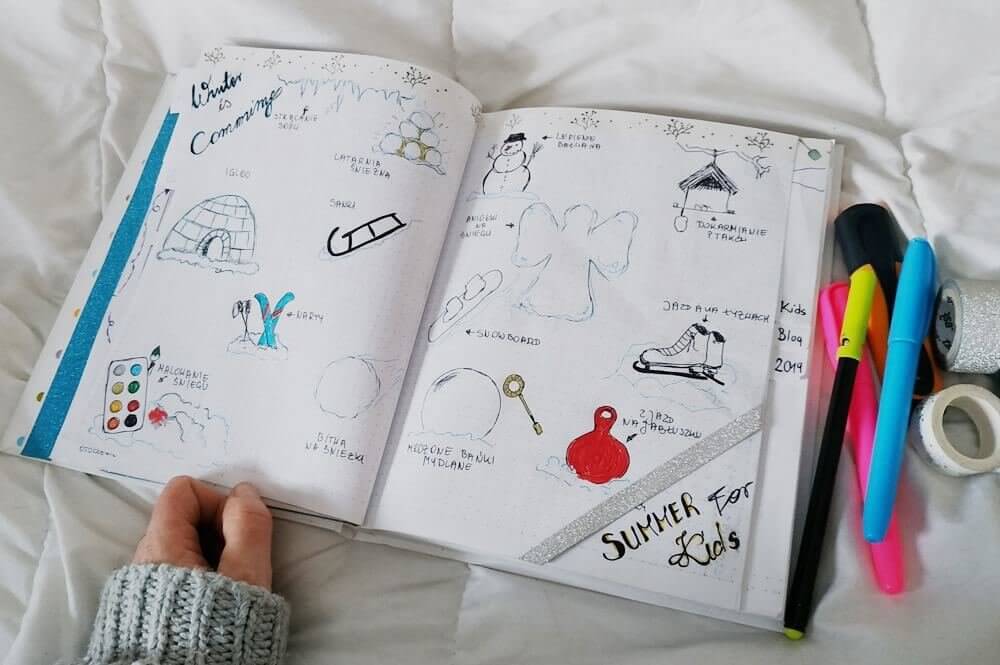 Winter
is
Comming
STRĄCANIE
SOPLI
LATARNIA
ŚNIEŻNA
IGLOO
SANKI
NARTY
MALOWANIE
ŚNIEGU
BITKA
NA ŚNIEŻKI
LEPIENIE
BAŁWANA
ANIOŁKI
NA
ŚNIEGU
DOKARMIANIE
PTAKÓW
SNOWBOARD
JAZDA NA ŁYŻWACH
MROŹNE BAŃKI
MYDLANE
ZJAZD
NA JABŁUSZKU
SUMMER For
Kids
Kids
Blog
2019